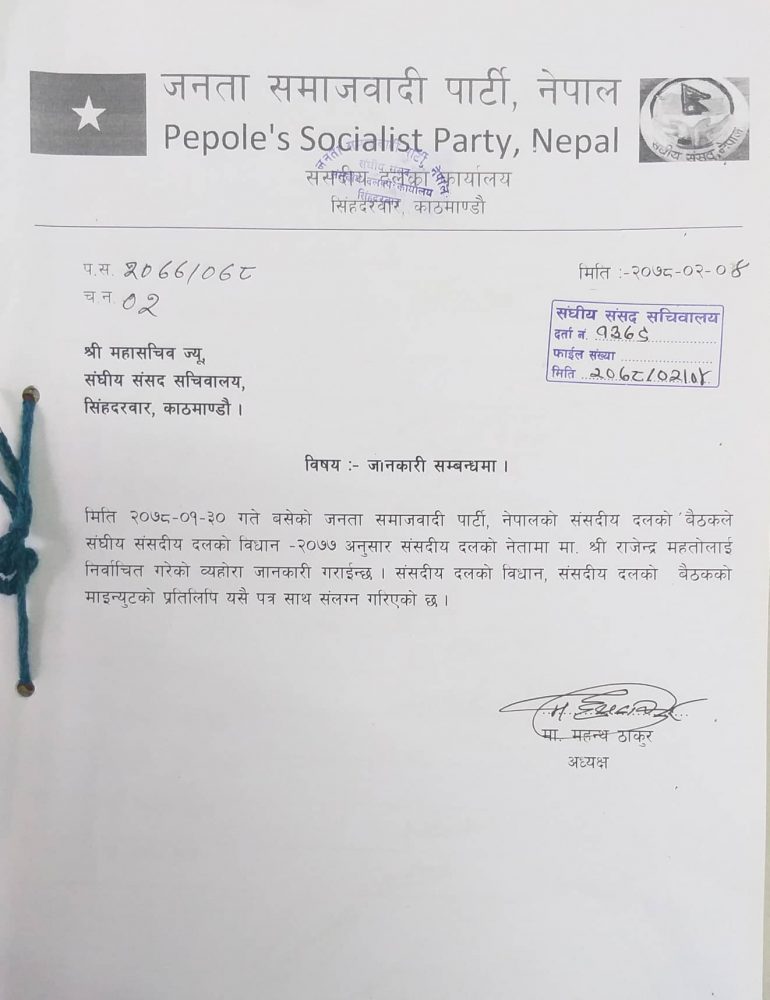 जनता समाजवादी पार्टी, नेपाल
Pepole's Socialist Party, Nepal
संसदीय दलको कार्यालय
सिंहदरवार, काठमाण्डौ
संघीय संसद, नेपाल
प.स. २०७७/०७८
मिति :-२०७८-०२-०४
च.न. ०२
संघीय संसद सचिवालय
दर्ता नं.
फाईल संख्या
मिति २०७८/०२/०४
श्री महासचिव ज्यू,
संघीय संसद सचिवालय,
सिंहदरवार, काठमाण्डौ ।
विषय :- जानकारी सम्बन्धमा ।
मिति २०७८-०१-३० गते बसेको जनता समाजवादी पार्टी, नेपालको संसदीय दलको बैठकले
संघीय संसदीय दलको विधान -२०७७ अनुसार संसदीय दलको नेतामा मा. श्री राजेन्द्र महतोलाई
निर्वाचित गरेको व्यहोरा जानकारी गराईन्छ । संसदीय दलको विधान, संसदीय दलको बैठकको
माइन्युटको प्रतिलिपि यसै पत्र साथ संलग्न गरिएको छ ।
मा. महन्थ ठाकुर
अध्यक्ष